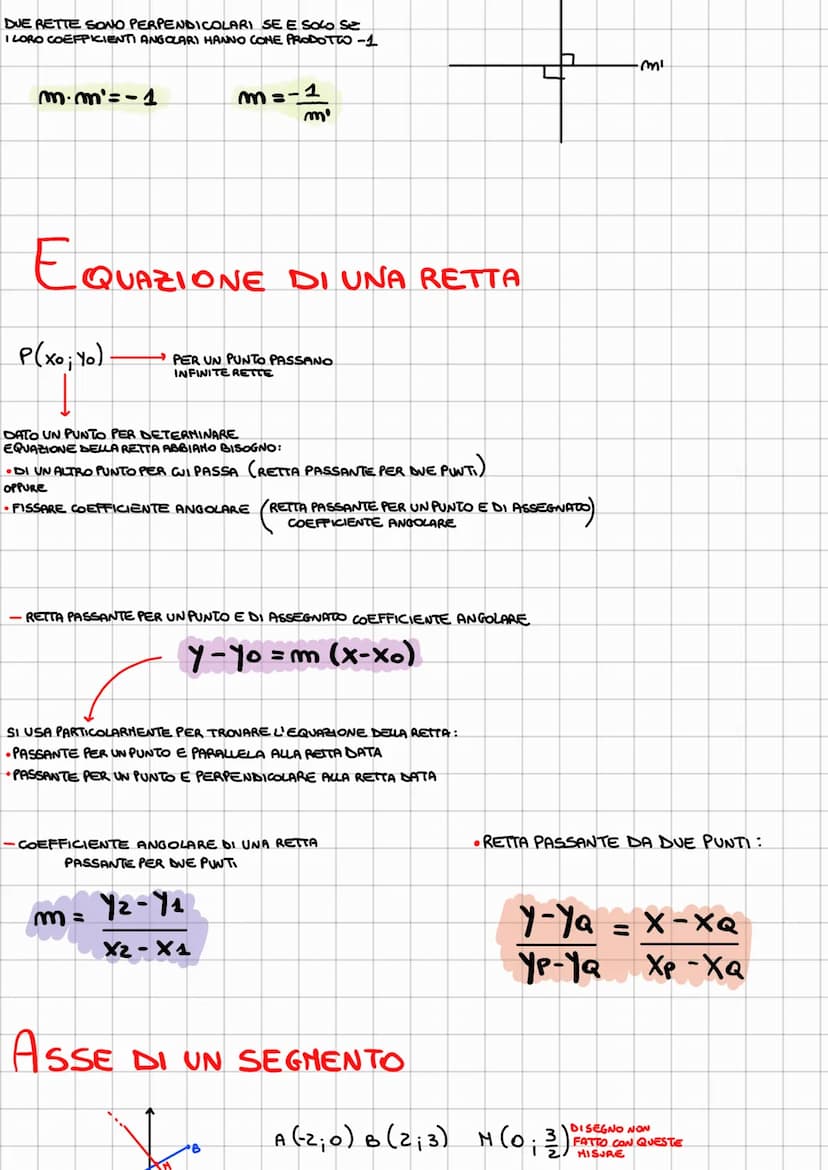 DUE RETTE SONO PERPENDICOLARI SE E SOLO SE
I LORO COEFFICIENTI ANGOLARI HANNO COME PRODOTTO -1
m'
m·m'=-1
m=-1/m'
EQUAZIONE DI UNA RETTA
P(x0;y0) → PER UN PUNTO PASSANO
INFINITE RETTE
DATO UN PUNTO PER DETERMINARE
EQUAZIONE DELLA RETTA ABBIAMO BISOGNO:
• DI UN ALTRO PUNTO PER CUI PASSA (RETTA PASSANTE PER DUE PUNTI)
OPPURE
• FISSARE COEFFICIENTE ANGOLARE (RETTA PASSANTE PER UN PUNTO E DI ASSEGNATO
COEFFICIENTE ANGOLARE)
- RETTA PASSANTE PER UN PUNTO E DI ASSEGNATO COEFFICIENTE ANGOLARE
y-y0=m(x-x0)
SI USA PARTICOLARMENTE PER TROVARE L'EQUAZIONE DELLA RETTA:
• PASSANTE PER UN PUNTO E PARALLELA ALLA RETTA DATA
• PASSANTE PER UN PUNTO E PERPENDICOLARE ALLA RETTA DATA
- COEFFICIENTE ANGOLARE DI UNA RETTA
PASSANTE PER DUE PUNTI
m = (y2-y1)/(x2-x1)
• RETTA PASSANTE DA DUE PUNTI:
(y-yQ)/(yP-yQ) = (x-xQ)/(xP-xQ)
ASSE DI UN SEGMENTO
B
M
A(-2;0) B(2;3) M(0;3/2)
DISEGNO NON
FATTO CON QUESTE
MISURE